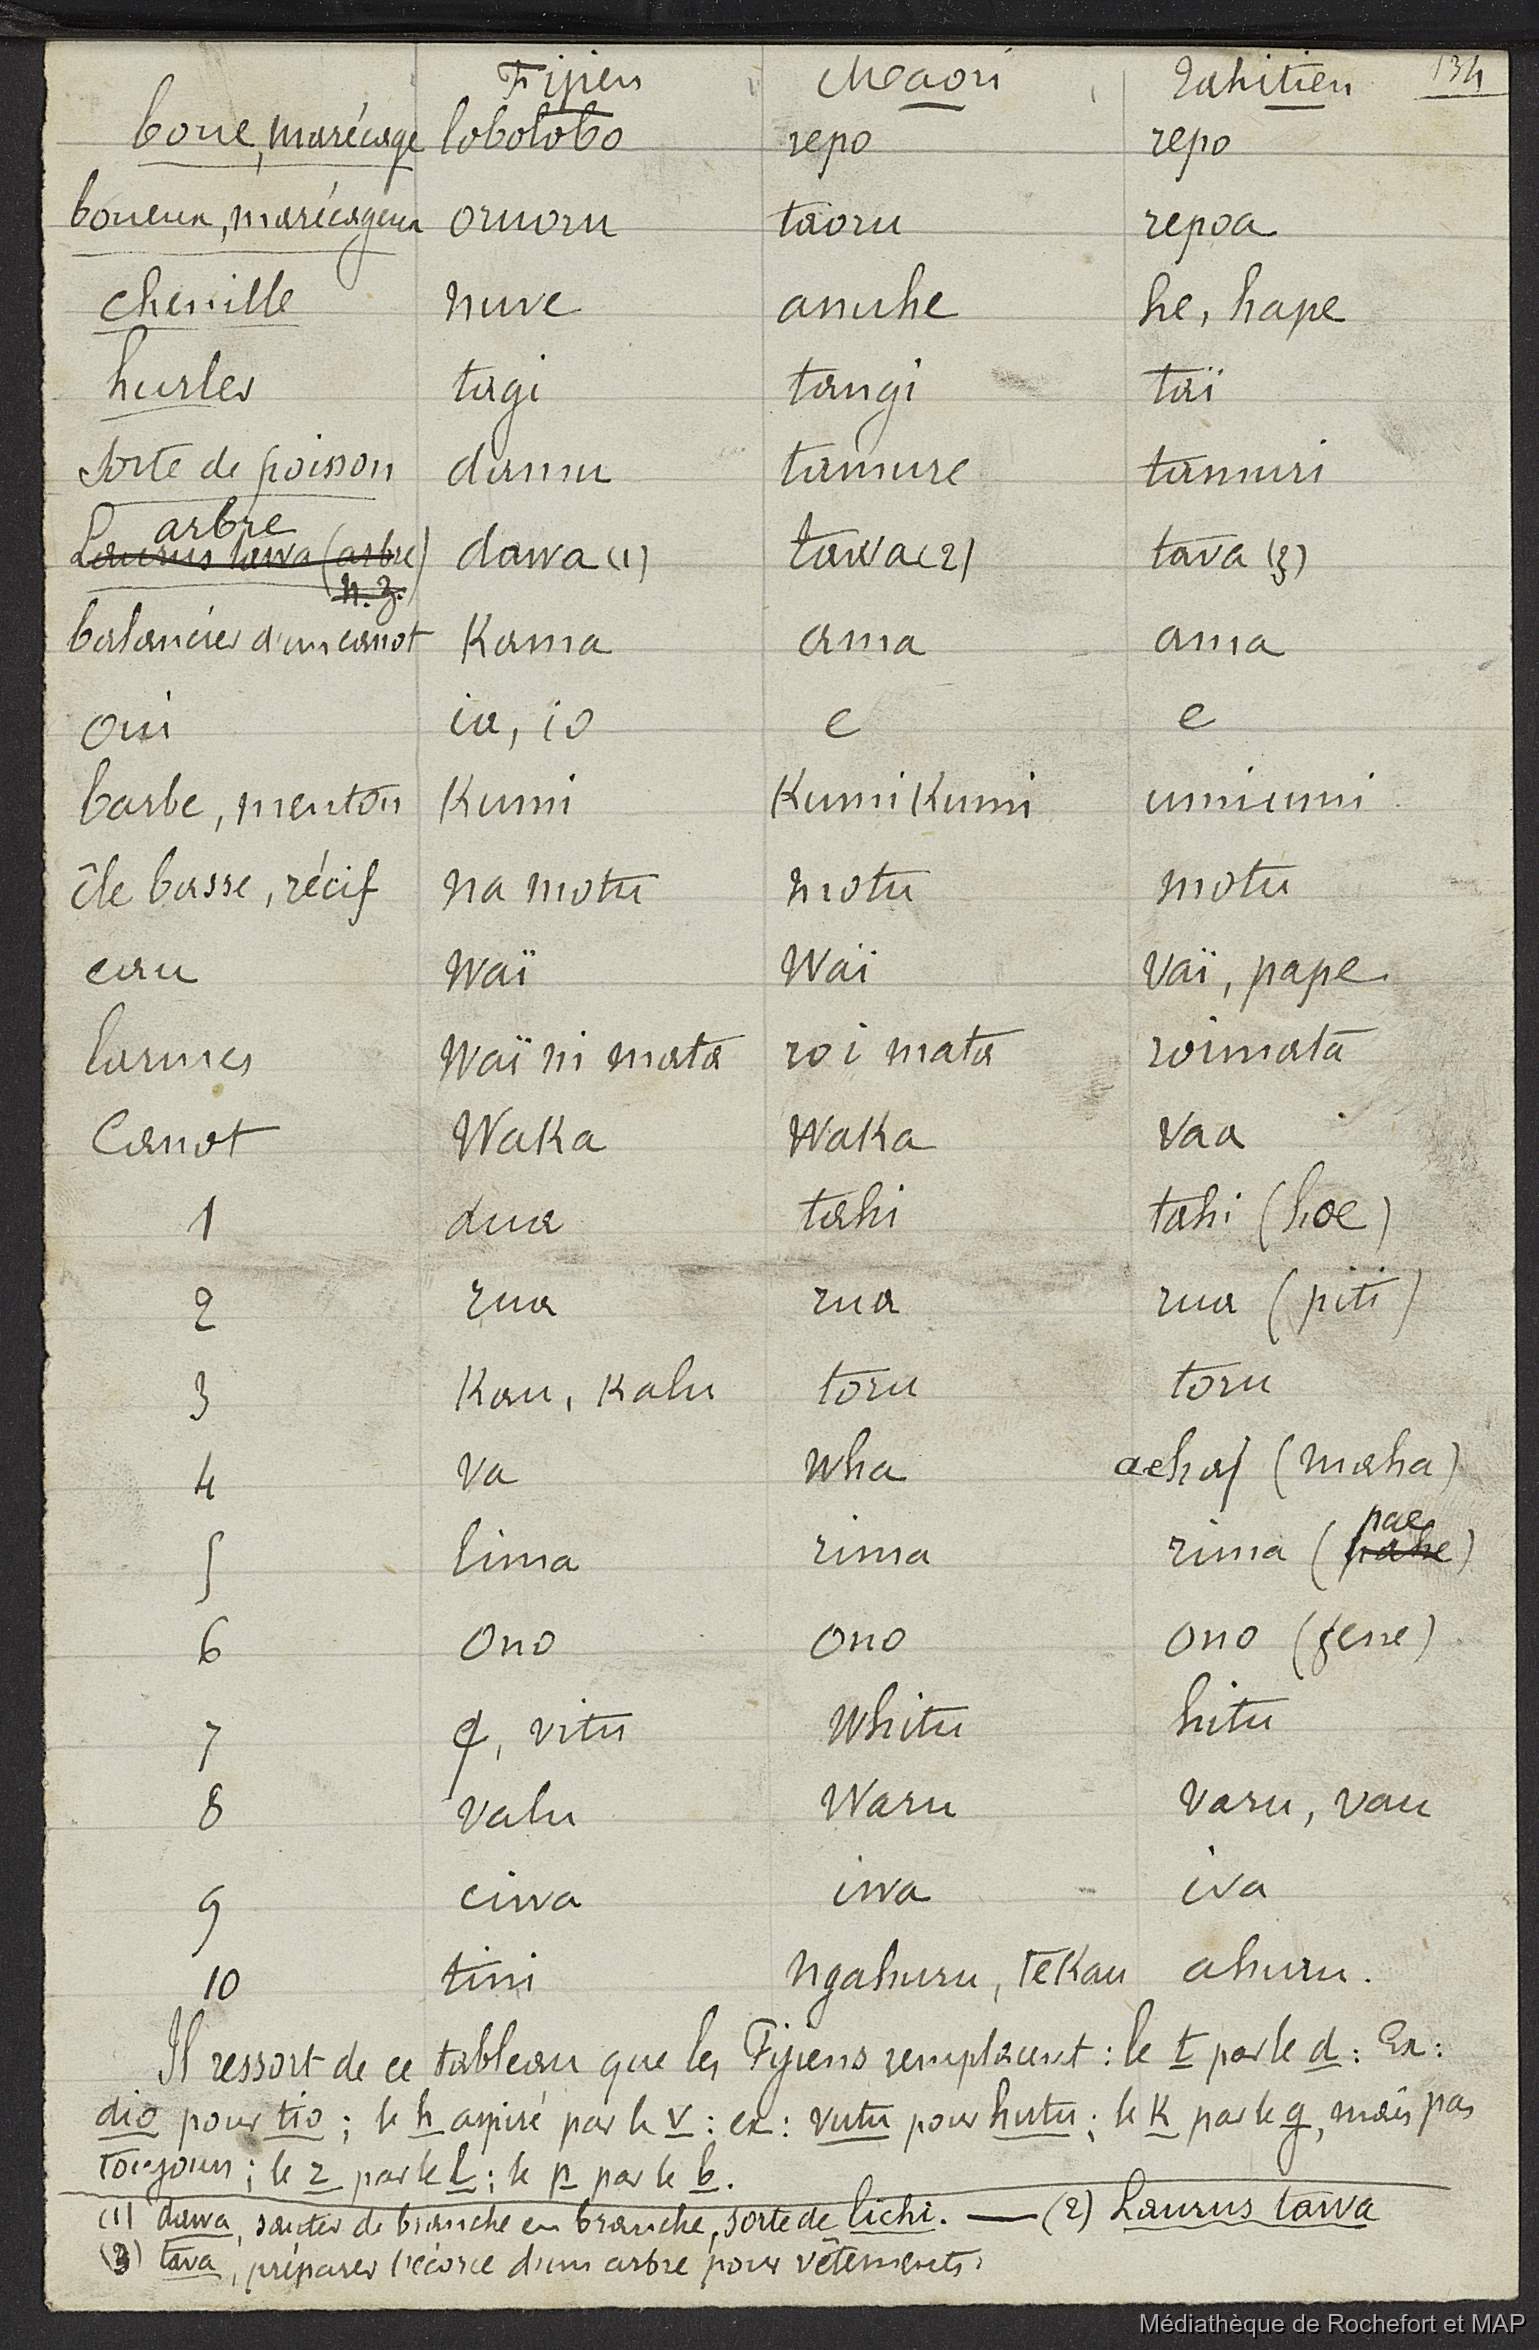 Fijien Maori Tahitien 134
boue, marécage lobolobo repo repo
boueux, marécageux oruoru taoru repoa
chenille nuve anuhe he, hape
hurler tagi tangi taï
Sorte de poisson damu tamure tamuri
arbre
Laurus tawa (arbre) dawa (1) tawa (2) tava (3)
n. z.
balancier d'un canot Kama ama ama
oui ia, io e e
barbe, menton Kumi KumiKumi umiumi
île basse, récif na motu motu motu
eau Waï Wai Vaï, pape
larmes Waï ni mata roi mata roimata
Canot Waka Waka Vaa
1 dua tahi tahi (hoe)
2 rua rua rua (piti)
3 Kau, Kalu toru toru
4 va wha aeha (maha)
pae
5 lima rima rima (pahe)
6 ono ono ono (fene)
7 vitu Whitu hitu
8 valu Waru Varu, vau
9 ciwa iwa iva
10 tini ngahuru, Tekau ahuru.
Il ressort de ce tableau que les Fijiens remplacent : le t par le d : Ex :
dio pour tio ; le h aspiré par le v : ex : vutu pour hutu ; le K par le g, mais pas
toujours ; le r par le l ; le p par le b.
(1) dawa, sauter de branche en branche, sorte de lichi. — (2) Laurus tawa
(3) tava, préparer l'écorce d'un arbre pour vêtements.
Médiathèque de Rochefort et MAP